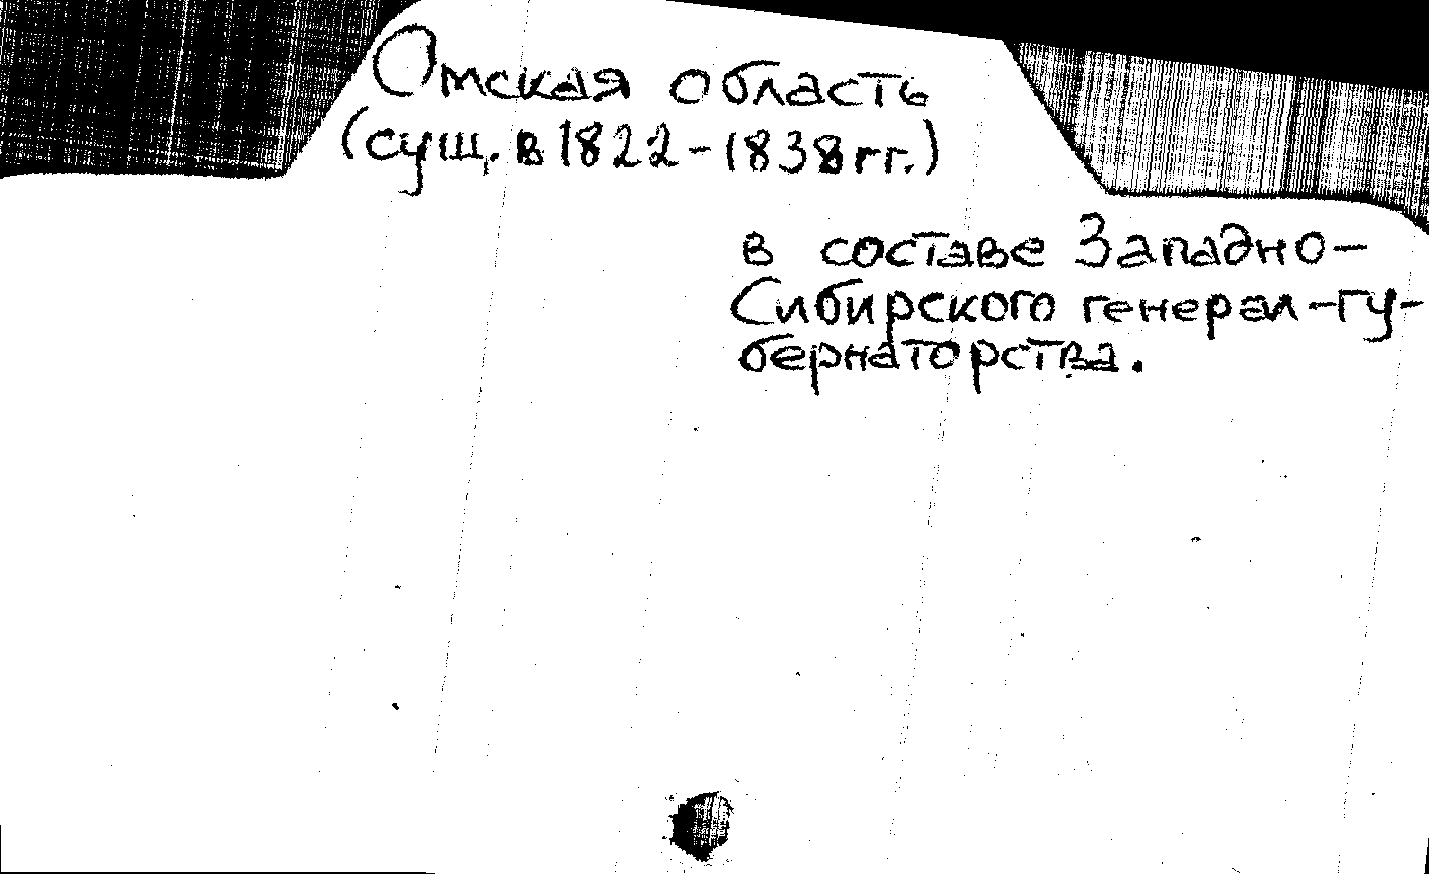 Омская область
(сущ. в 1822-1838 гг.)
в составе Западно-
Сибирского генерал-гу-
бернаторства.